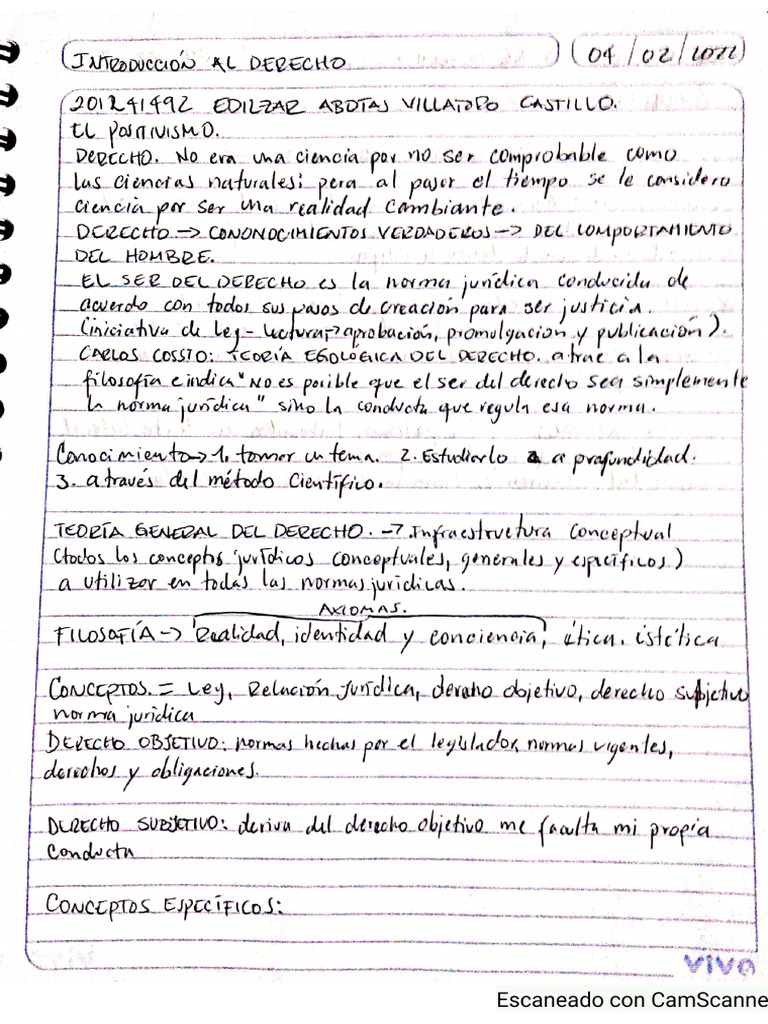 INTRODUCCIÓN AL DERECHO
04/02/2022
201241492 EDILZAR ABDIAS VILLATORO CASTILLO.
EL POSITIVISMO.
DERECHO. No era una ciencia por no ser comprobable como
las ciencias naturales; pera al pasar el tiempo se le considero
ciencia por ser una realidad cambiante.
DERECHO → CONONOCIMIENTOS VERDADEROS → DEL COMPORTAMIENTO
DEL HOMBRE.
EL SER DEL DERECHO es la norma jurídica conducida de
acuerdo con todos sus pasos de creación para ser justicia.
(iniciativa de Ley - lectura, → aprobación, promulgación y publicación).
CARLOS COSSIO: TEORÍA EGOLÓGICA DEL DERECHO. atrae a la
filosofía e indica "No es posible que el ser del derecho sea simplemente
la norma jurídica" sino la conducta que regula esa norma.
Conocimiento → 1. tomar un tema. 2. Estudiarlo a profundidad.
3. a través del método científico.
TEORÍA GENERAL DEL DERECHO. → Infraestructura conceptual
(todos los conceptos jurídicos conceptuales, generales y específicos)
a utilizar en todas las normas jurídicas.
AXIOMAS.
FILOSOFÍA → Realidad, identidad y conciencia, ética. estética
CONCEPTOS. = Ley, Relación Jurídica, derecho objetivo, derecho subjetivo
norma jurídica
DERECHO OBJETIVO: normas hechas por el legislador, normas vigentes,
derechos y obligaciones.
DERECHO SUBJETIVO: deriva del derecho objetivo me faculta mi propia
conducta
CONCEPTOS ESPECÍFICOS:
vivo
Escaneado con CamScanne